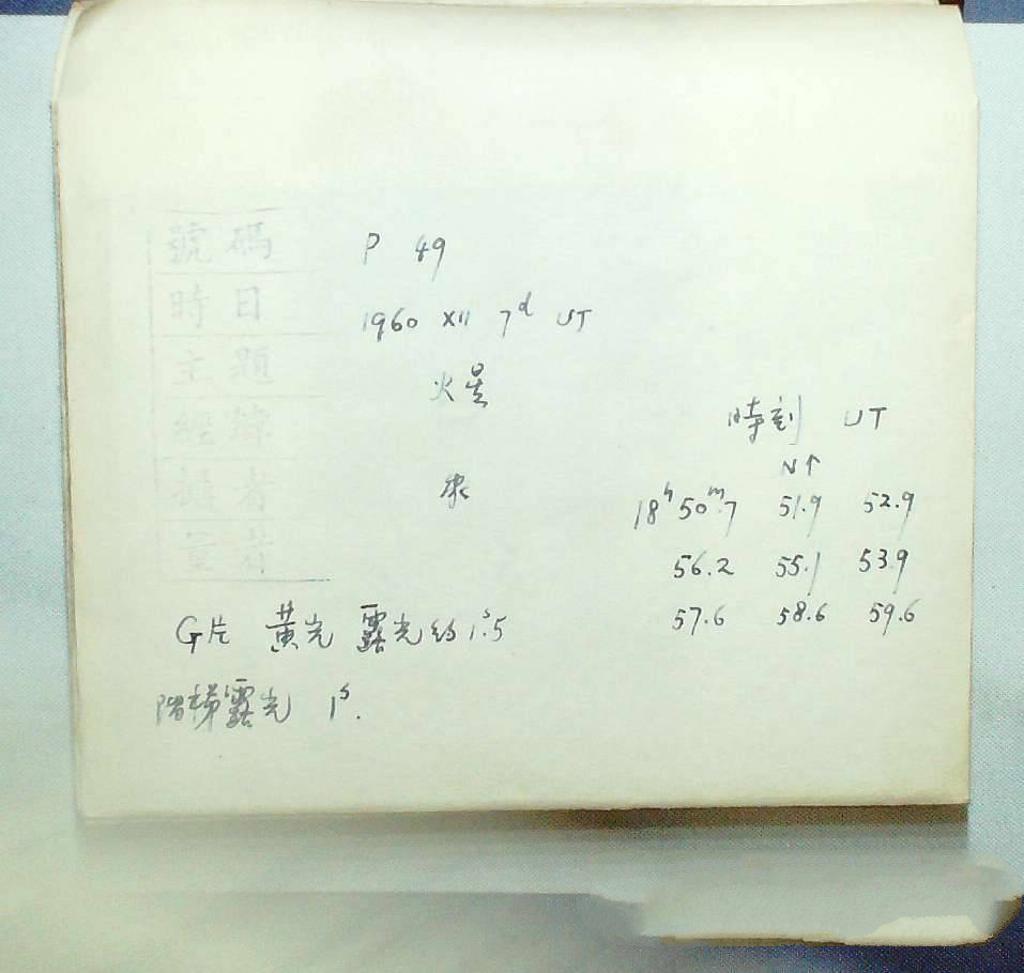 號碼 P 49
時日 1960 XII 7ᵈ UT
主題 火星
時刻 UT
經緯
N↑
攝者
18ʰ50ᵐ.7 51.9 52.9
56.2 55.1 53.9
57.6 58.6 59.6
G片 黃光 露光約 1ˢ.5
階梯露光 1ˢ.